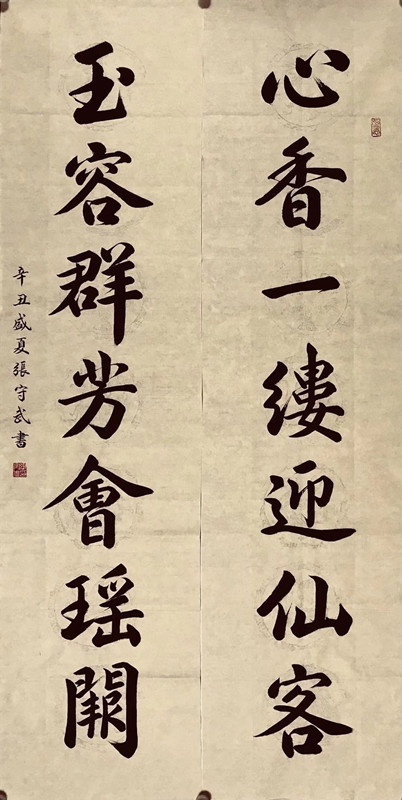 心香一缕迎仙客
玉容群芳會瑶闕
辛丑盛夏張守武書